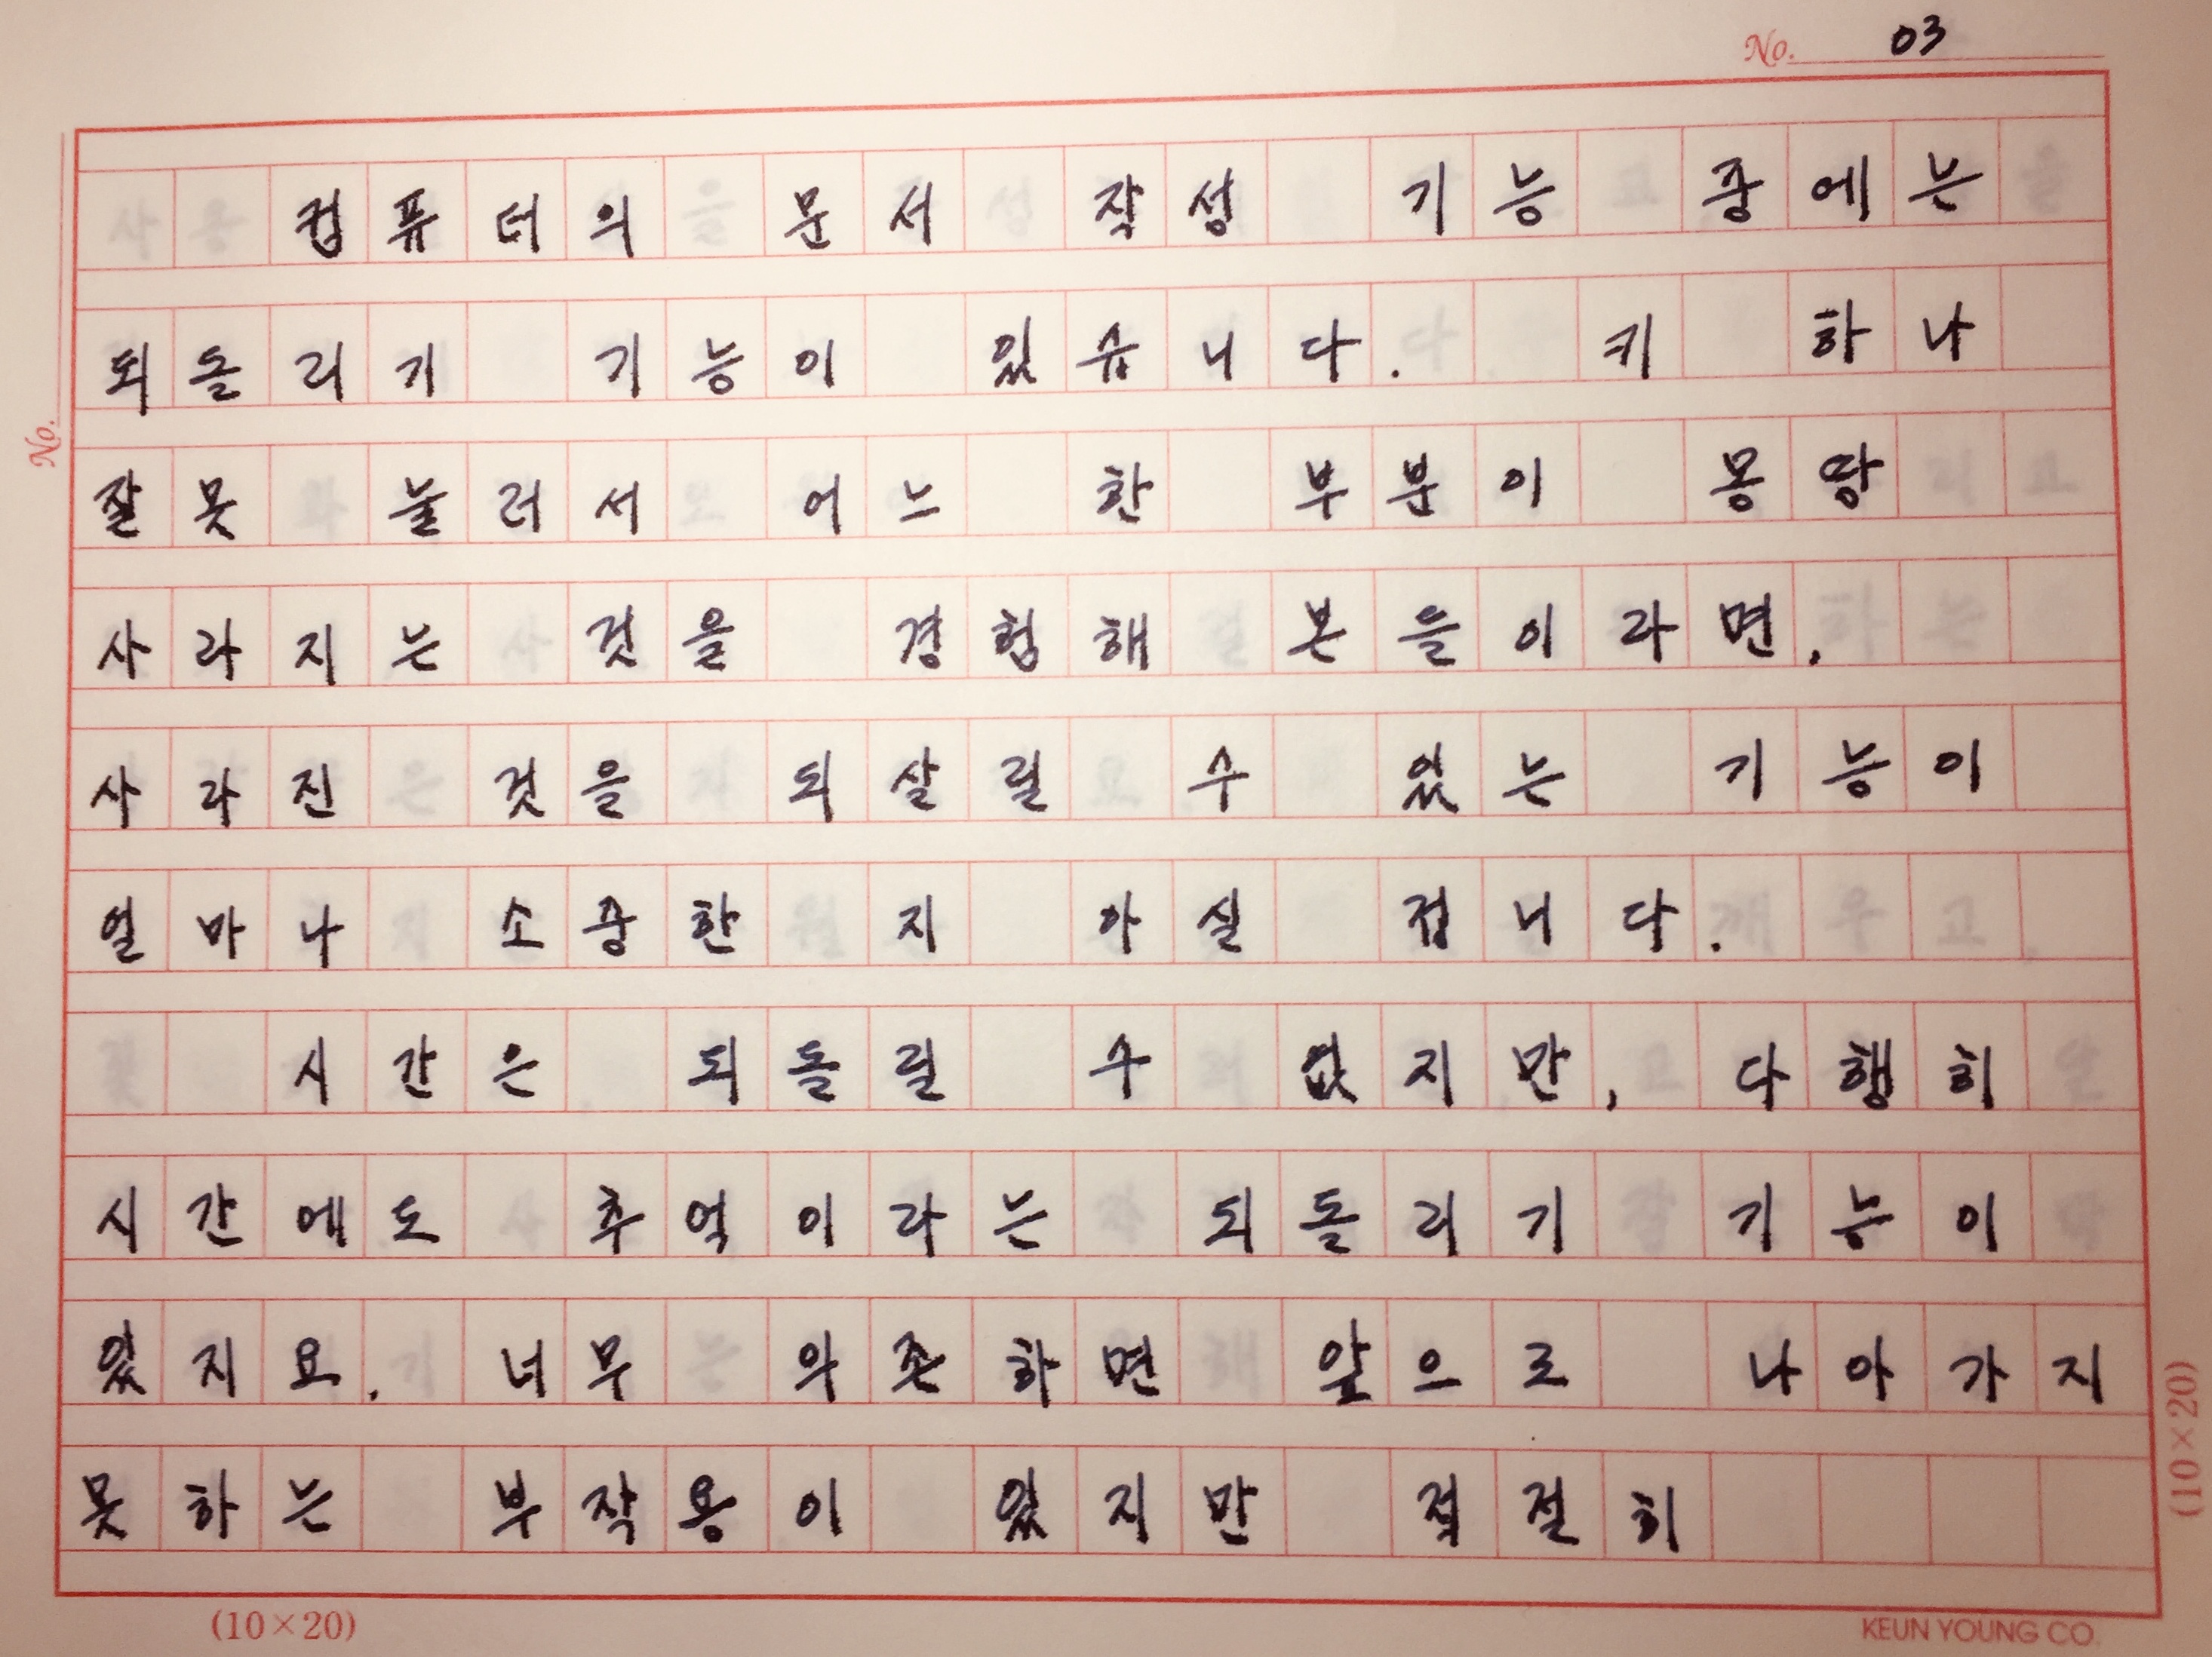 No. 03
컴퓨터의 문서 작성 기능 중에는
되돌리기 기능이 있습니다. 키 하나
잘못 눌러서 어느 한 부분이 몽땅
사라지는 것을 경험해 본 을이라면,
사라진 것을 되살릴 수 있는 기능이
얼마나 소중한 지 아실 겁니다.
시간은 되돌릴 수 없지만, 다행히
시간에도 추억이라는 되돌리기 기능이
있지요. 너무 의존하면 앞으로 나아가지
못하는 부작용이 있지만 적절히
No.
(10×20)
(10×20)
KEUN YOUNG CO.